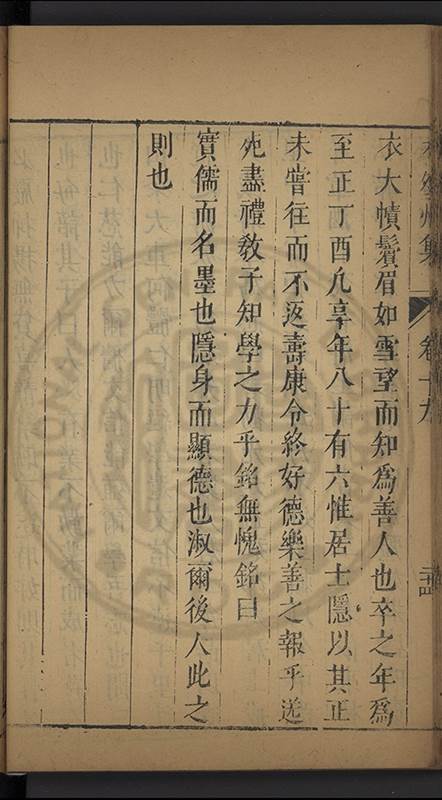 衣大幘鬢眉如雪望而知為善人也卒之年為
至正丁酉凢享年八十有六惟居士隱以其正
未嘗往而不返壽康令終好德樂善之報乎送
死盡禮教子知學之力乎銘無愧銘曰
實儒而名墨也隱身而顯德也淑爾後人此之
則也